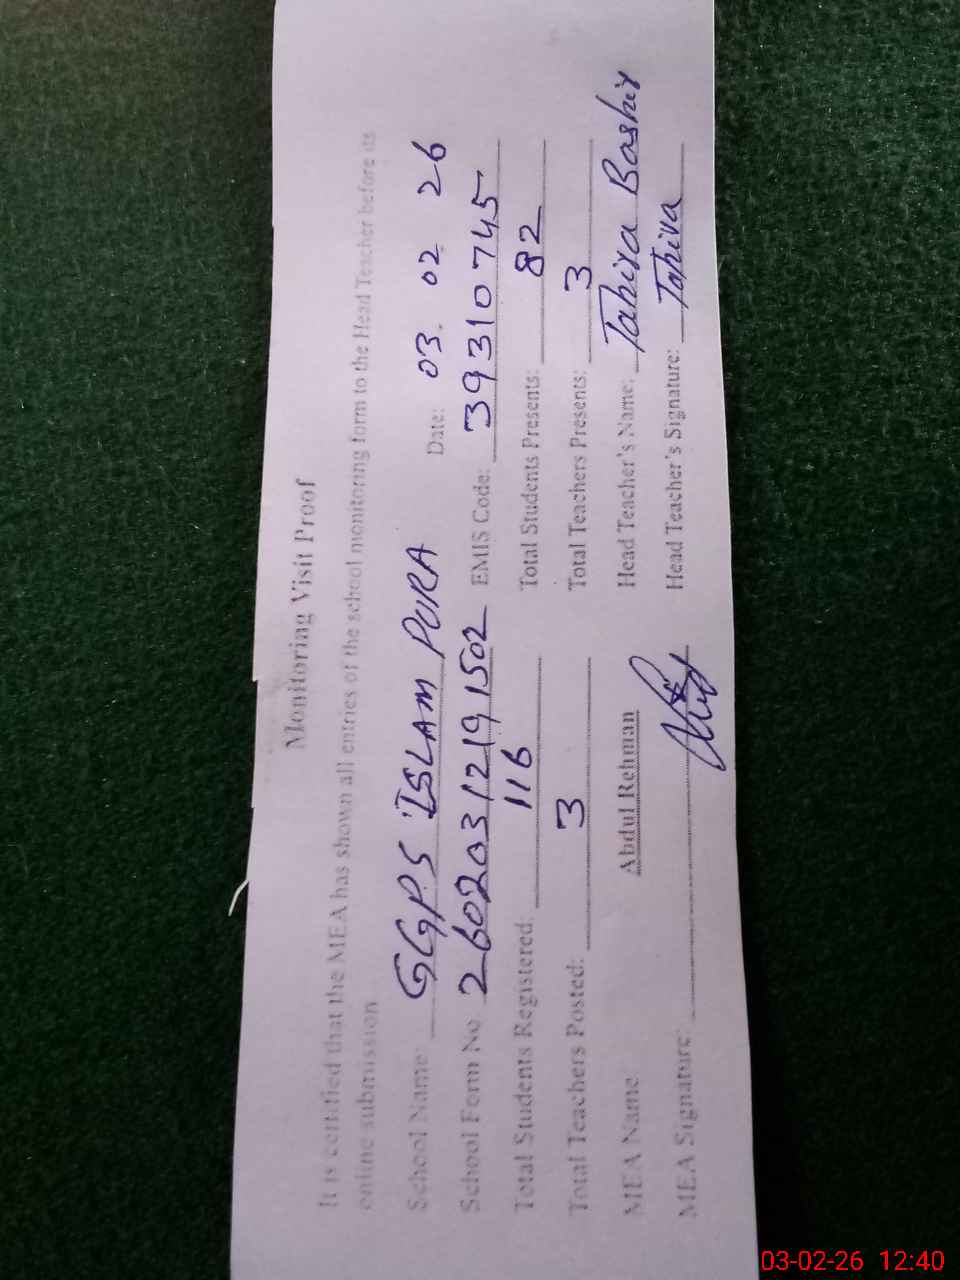 Monitoring Visit Proof
It is certified that the MEA has shown all entries of the school monitoring form to the Head Teacher before its
online submission
School Name: GGPS ISLAM PURA Date: 03. 02 26
School Form No 26020312191502 EMIS Code: 39310745
Total Students Registered: 116 Total Students Presents: 82
Total Teachers Posted: 3 Total Teachers Presents: 3
MEA Name Abdul Rehman Head Teacher's Name: Tahira Bashir
MEA Signature: Head Teacher's Signature: Tahira
03-02-26 12:40